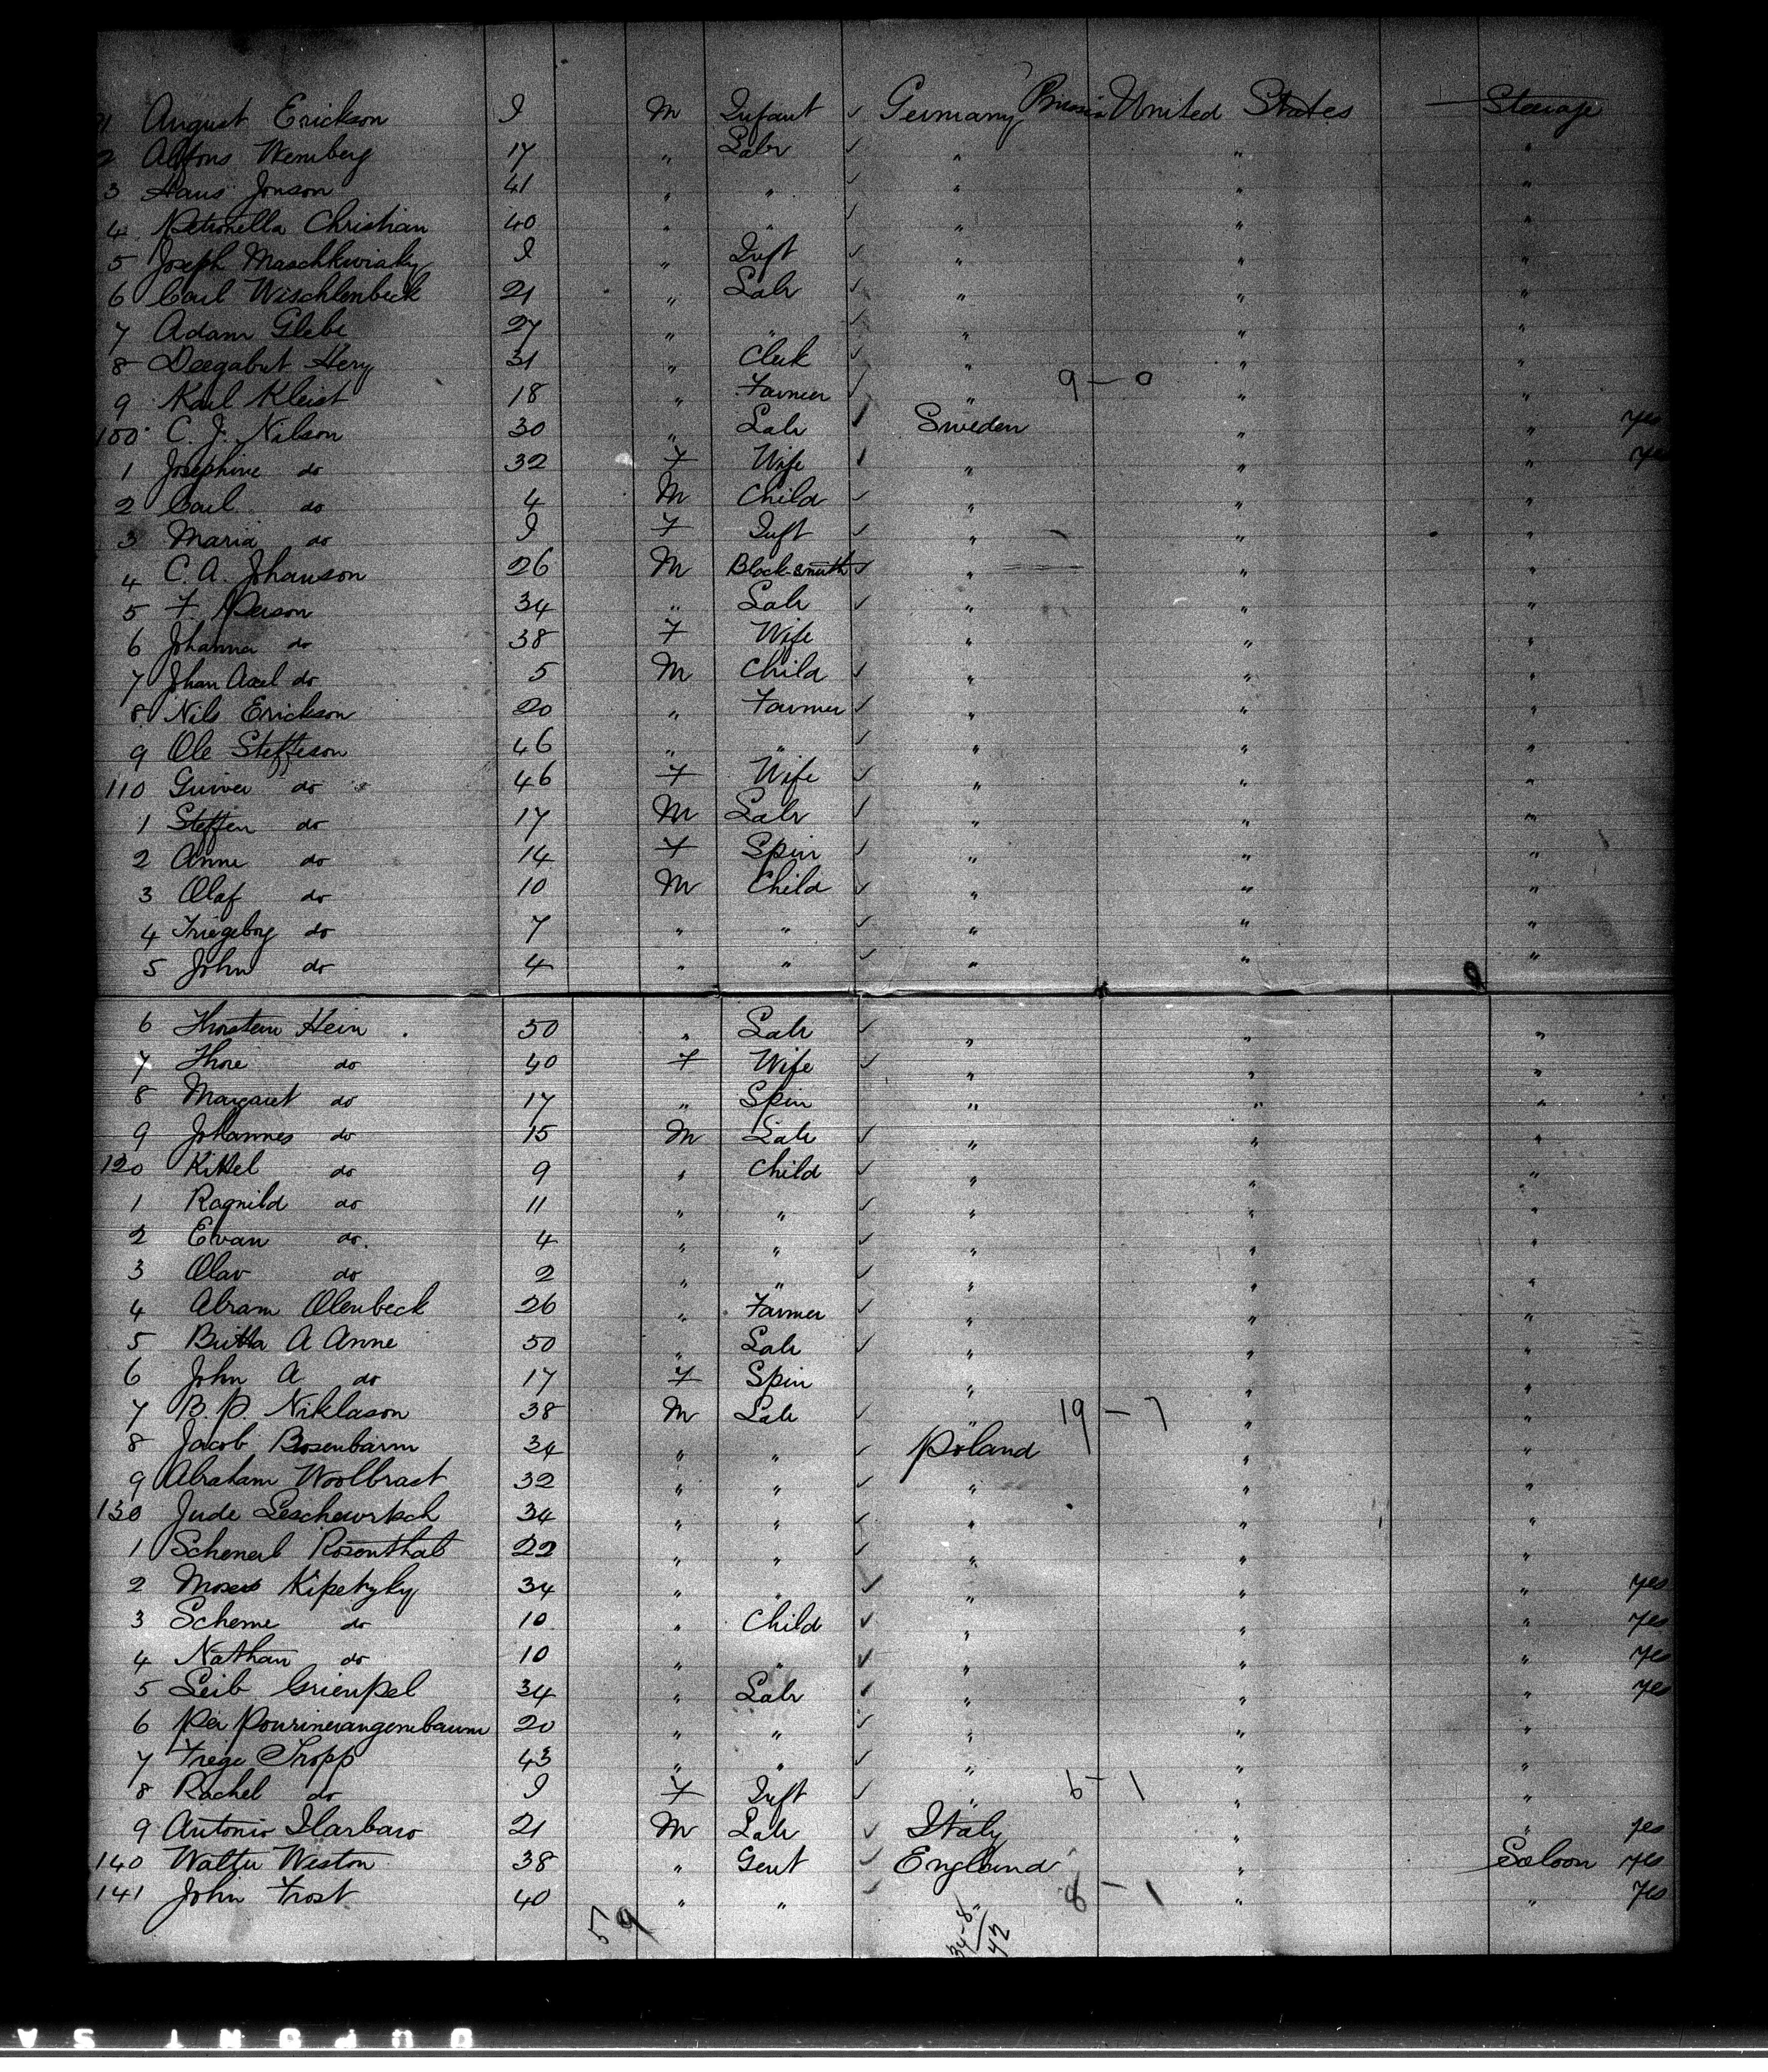 91 August Erickson 9 M Infant ✓ Germany Prussia United States Steerage
2 Alfons Wemberg 17 " Labr ✓ " " "
3 Hans Jonson 41 " " ✓ " " "
4 Petronella Christian 40 " " ✓ " " "
5 Joseph Maschkwiaky 9 " Inft ✓ " " "
6 Carl Wischlenbeck 21 " Labr ✓ " " "
7 Adam Glebe 27 " " ✓ " " "
8 Deegabut Hery 31 " Clerk ✓ " " "
9 Karl Kleist 18 " Farmer ✓ " 9 – 0 " "
100 C. J. Nilson 30 " Labr ✓ Sweden " " yes
1 Josephine do 32 F Wife ✓ " " " yes
2 Carl do 4 M Child ✓ " " "
3 Maria do 9 F Inft ✓ " " "
4 C. A. Johanson 26 M Black-smith ✓ " " "
5 F. Person 34 " Labr ✓ " " "
6 Johanna do 38 F Wife " " "
7 Johan Axel do 5 M Child ✓ " " "
8 Nils Erickson 20 " Farmer ✓ " " "
9 Ole Steffeson 46 " " ✓ " " "
110 Gunver do 46 F Wife ✓ " " "
1 Steffen do 17 M Labr ✓ " " "
2 Anne do 14 F Spin ✓ " " "
3 Olaf do 10 M Child ✓ " " "
4 Triegeborg do 7 " " ✓ " " "
5 John do 4 " " ✓ " " "
6 Thorstein Hein 50 " Labr ✓ " " "
7 Thore do 40 F Wife ✓ " " "
8 Margaret do 17 " Spin " " "
9 Johannes do 15 M Labr ✓ " " "
120 Kittel do 9 " Child ✓ " " "
1 Ragnild do 11 " " ✓ " " "
2 Evan do 4 " " ✓ " " "
3 Olav do 2 " " ✓ " " "
4 Abram Olenbeck 26 " Farmer ✓ " " "
5 Britta A Anne 50 " Labr ✓ " " "
6 John A do 17 F Spin " " "
7 B. P. Niklason 38 M Labr ✓ " 19 – 7 " "
8 Jacob Bosenbarm 34 " " ✓ Poland " "
9 Abraham Woolbrast 32 " " ✓ " " "
130 Jude Leschewrtsch 34 " " ✓ " " "
1 Schenerl Rosenthal 22 " " ✓ " " "
2 Moses Kipetzky 34 " " ✓ " " " yes
3 Scheme do 10 " Child ✓ " " " yes
4 Nathan do 10 " " ✓ " " " yes
5 Leib Grienpel 34 " Labr ✓ " " " yes
6 Per 20 " " ✓ " " "
7 Frege Tropp 43 " " ✓ " " "
8 Rachel do 9 F Inft ✓ " 6 – 1 " "
9 Antonio Ilarbaro 21 M Labr ✓ Italy " " yes
140 Walter Weston 38 " Gent ✓ England " Saloon yes
141 John Frost 40 " " ✓ " 8 – 1 " " yes
59
34-8
42